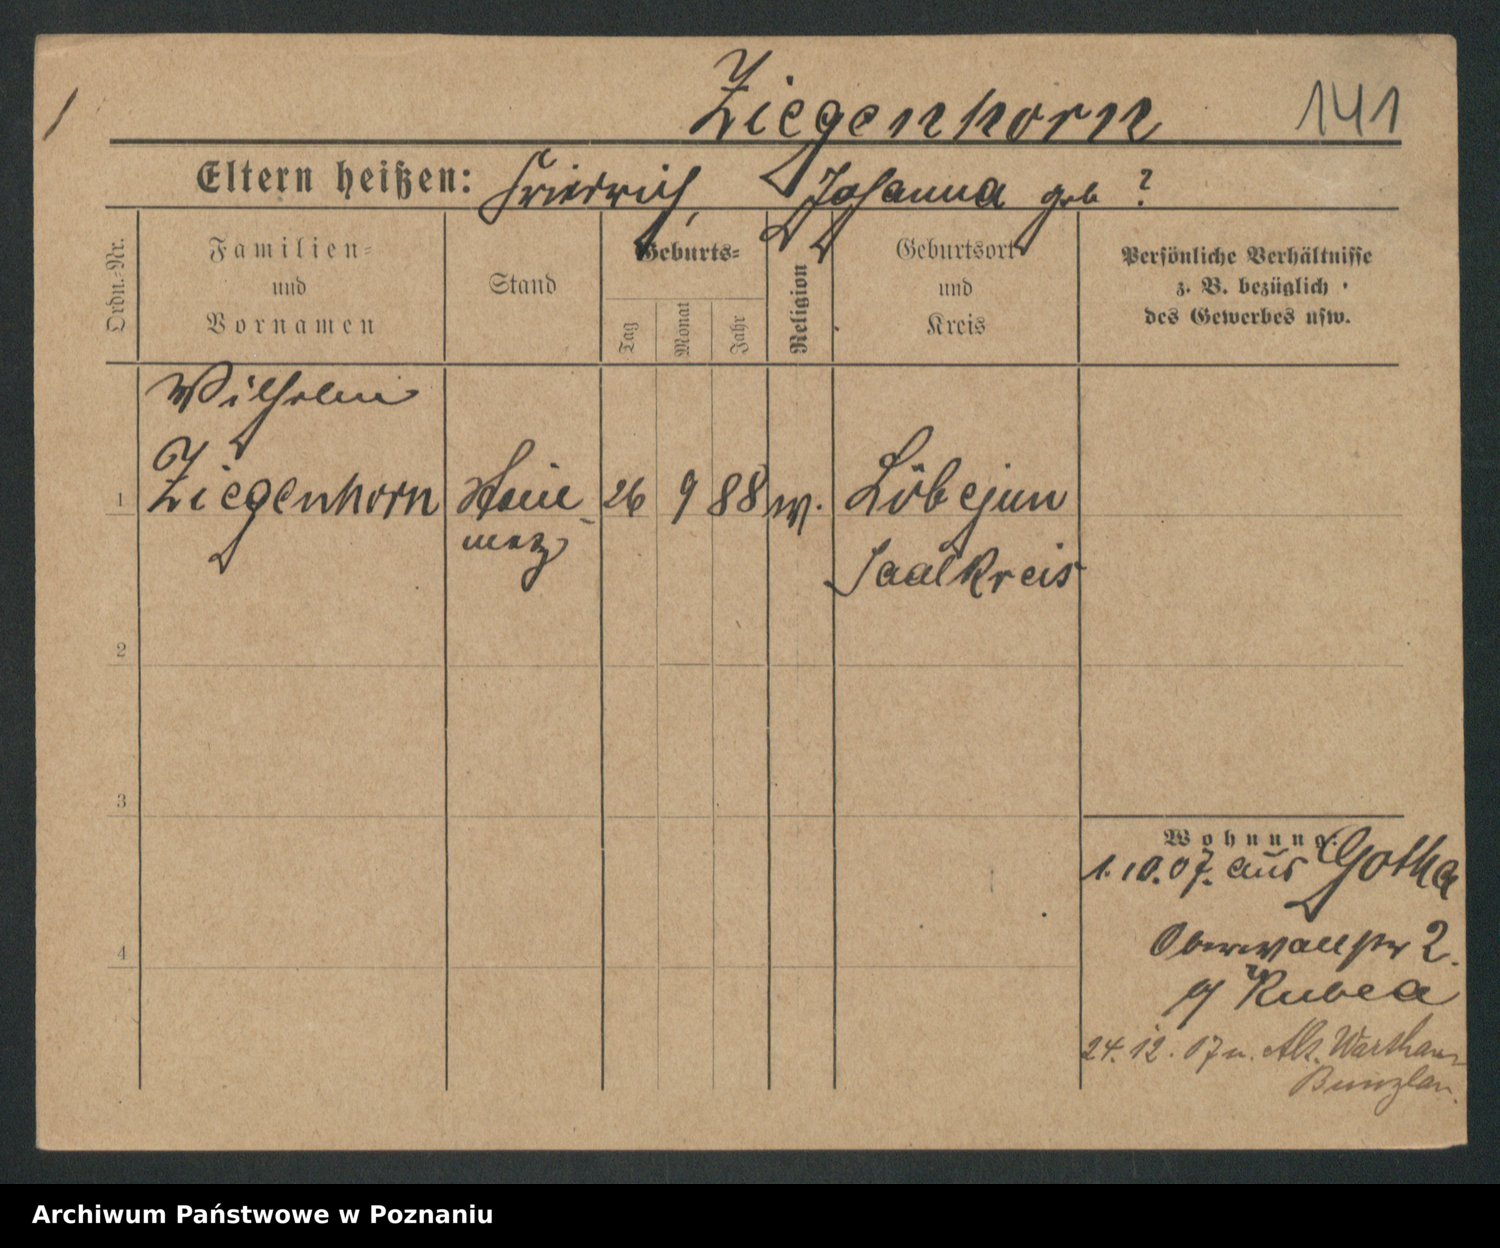 Ziegenhorn 141
Eltern heißen: Friedrich, Johanna geb ?
Ordn.-Nr.
Familien-
und
Vornamen
Stand
Geburts-
Tag
Monat
Jahr
Religion
Geburtsort
und
Kreis
Persönliche Verhältnisse
z. B. bezüglich
des Gewerbes usw.
Wilhelm
1 Ziegenhorn Stein- 26 9 88 Löbejun
metz Saalkreis
2
3
4
Wohnung:
1.10.07. aus Gotha
Oberwallstr 2.
24.12.07 n. Alt. Warthau
Bunzlau.
Archiwum Państwowe w Poznaniu